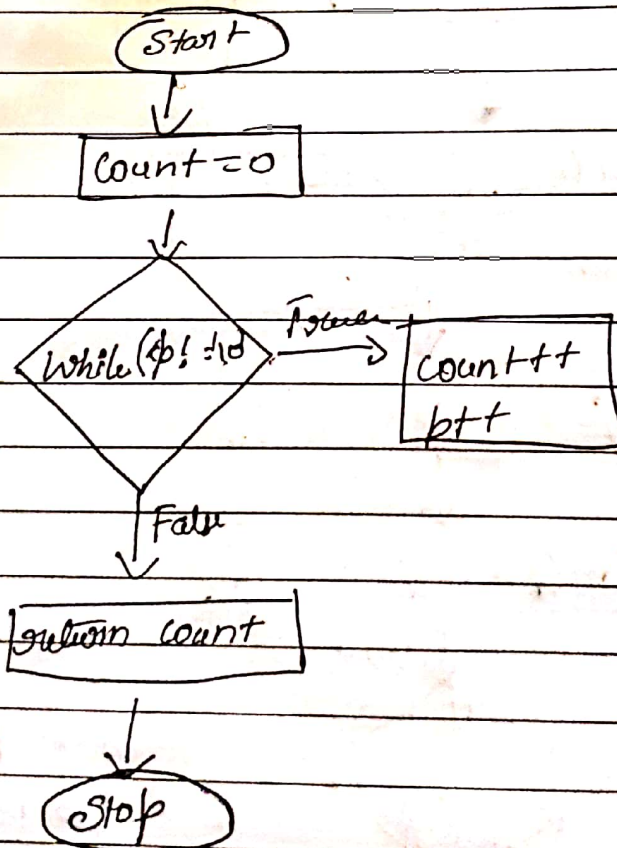 Start
count = 0
while(*p! = \0
True
count++
p++
False
return count
Stop